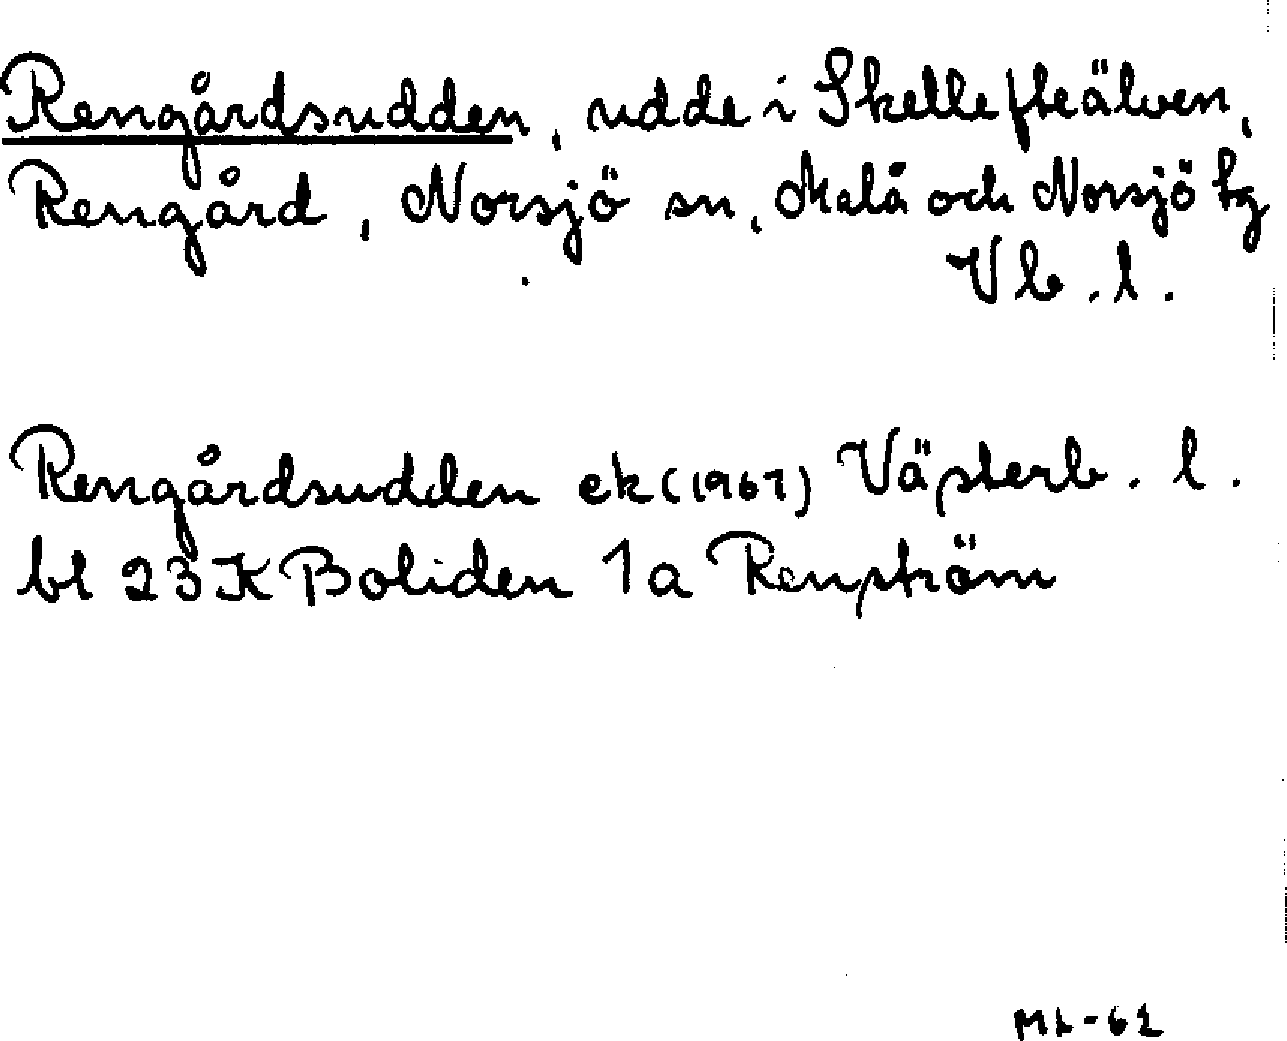 Rengårdsudden, udde i Skellefteälven,
Rengård, Norsjö sn, Malå och Norsjö tg
Vb. l.
Rengårdsudden ek (1961) Västerb. l.
bl 23 K Boliden 1a Renström